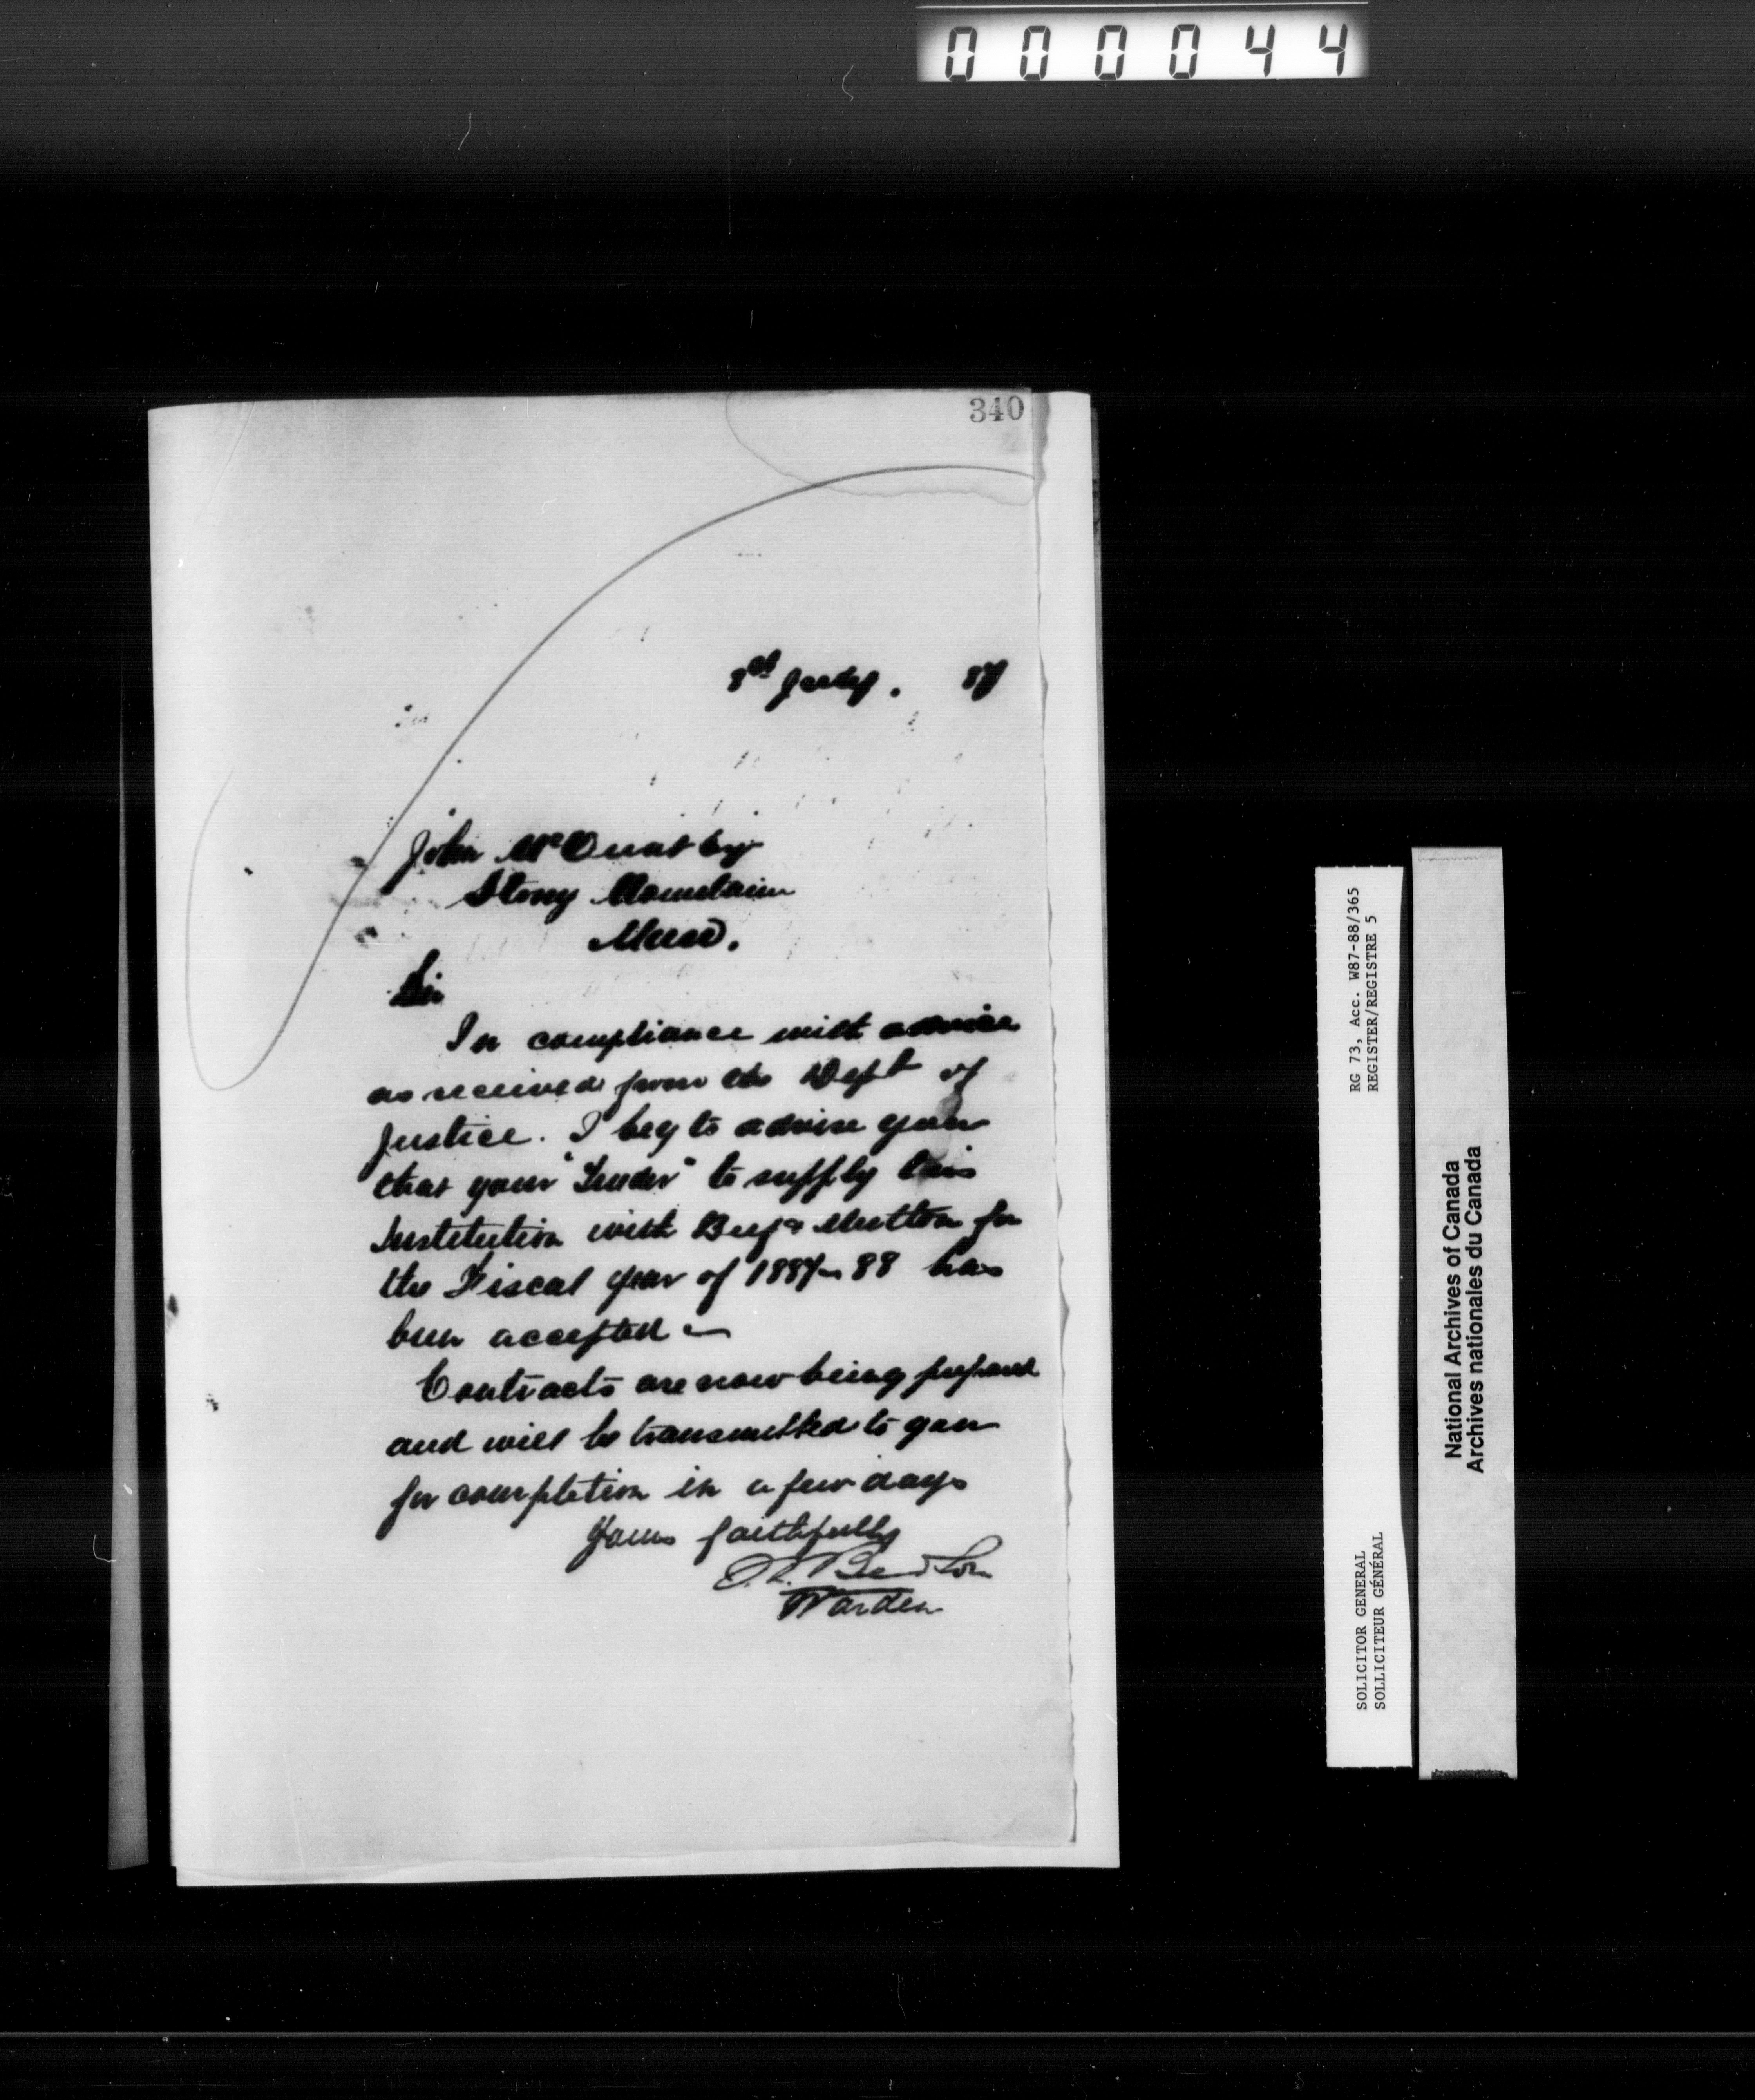 000044
340
1st July. 87
John McOuat Esq
Stony Mountain
Man.
Sir
In compliance with advice
as received from the Dept of
Justice. I beg to advise you
that your "Tender" to supply this
Institution with Beef & Mutton for
the Fiscal year of 1887-88 has
been accepted -
Contracts are now being prepared
and will be transmitted to you
for completion in a few days
Yours faithfully
S. L. Bedson
Warden
RG 73, Acc. W87-88/365
REGISTER/REGISTRE 5
SOLICITOR GENERAL
SOLLICITEUR GÉNÉRAL
National Archives of Canada
Archives nationales du Canada